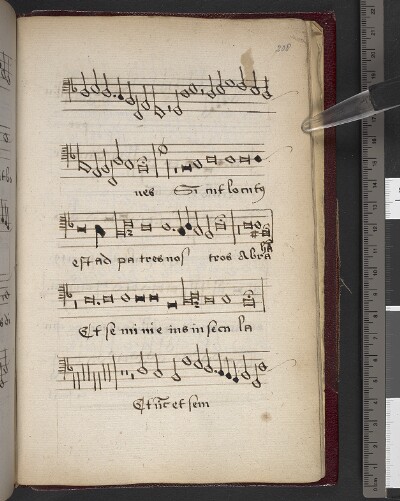 208
nes Si cut locut9
est ad pa tres nos tros Abra
hã
Et se mi nie ius in secu la
Et nc̃ et sem